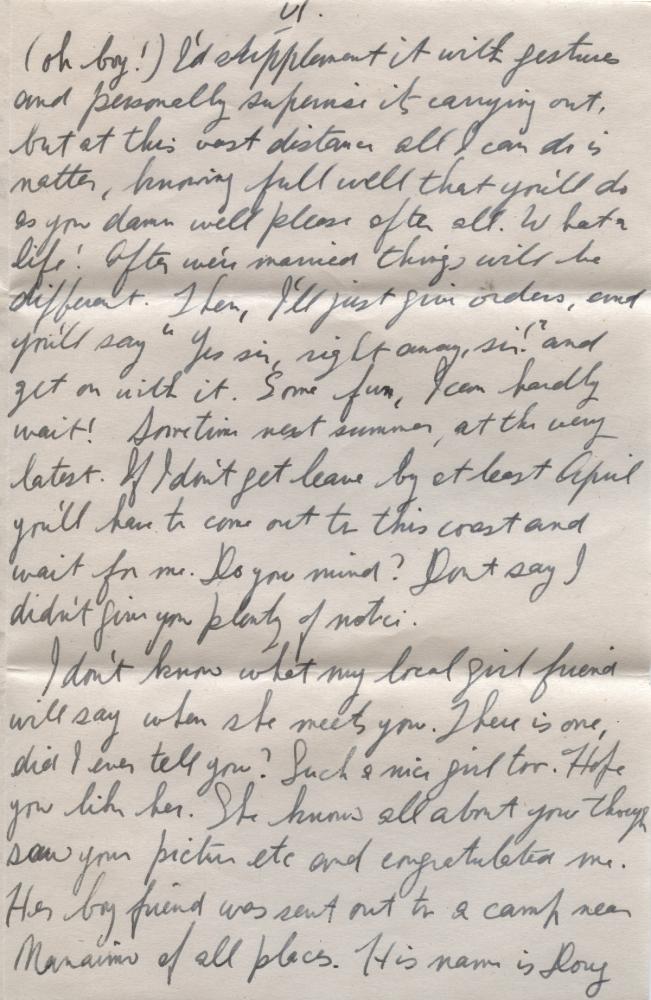 VI.
(oh boy!) I'd supplement it with gestures
and personally supervise its carrying out,
but at this vast distance all I can do is
natter, knowing full well that you'll do
as you damn well please after all. What a
life! After we're married things will be
different. Then, I'll just give orders, and
you'll say "Yes sir, right away, sir!" and
get on with it. Some fun, I can hardly
wait! Sometime next summer, at the very
latest. If I don't get leave by at least April
you'll have to come out to this coast and
wait for me. Do you mind? Don't say I
didn't give you plenty of notice.
I don't know what my local girl friend
will say when she meets you. There is one,
did I ever tell you? Such a nice girl too. Hope
you like her. She knows all about you though
saw your picture etc and congratulated me.
Her boy friend was sent out to a camp near
Nanaimo of all places. His name is Doug